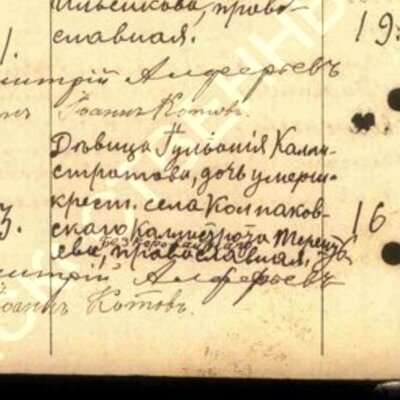 Ильенкова, право-
славная.
19
митрій Алферьевъ
Іоаннъ Котовъ.
Дѣвица Гульанія Калли-
стратова, дочь умерш.
крест. села Колпаков-
скаго Каллистрата Терент
16
ева, православная,
митрій Алферьевъ
Іоаннъ Котовъ.